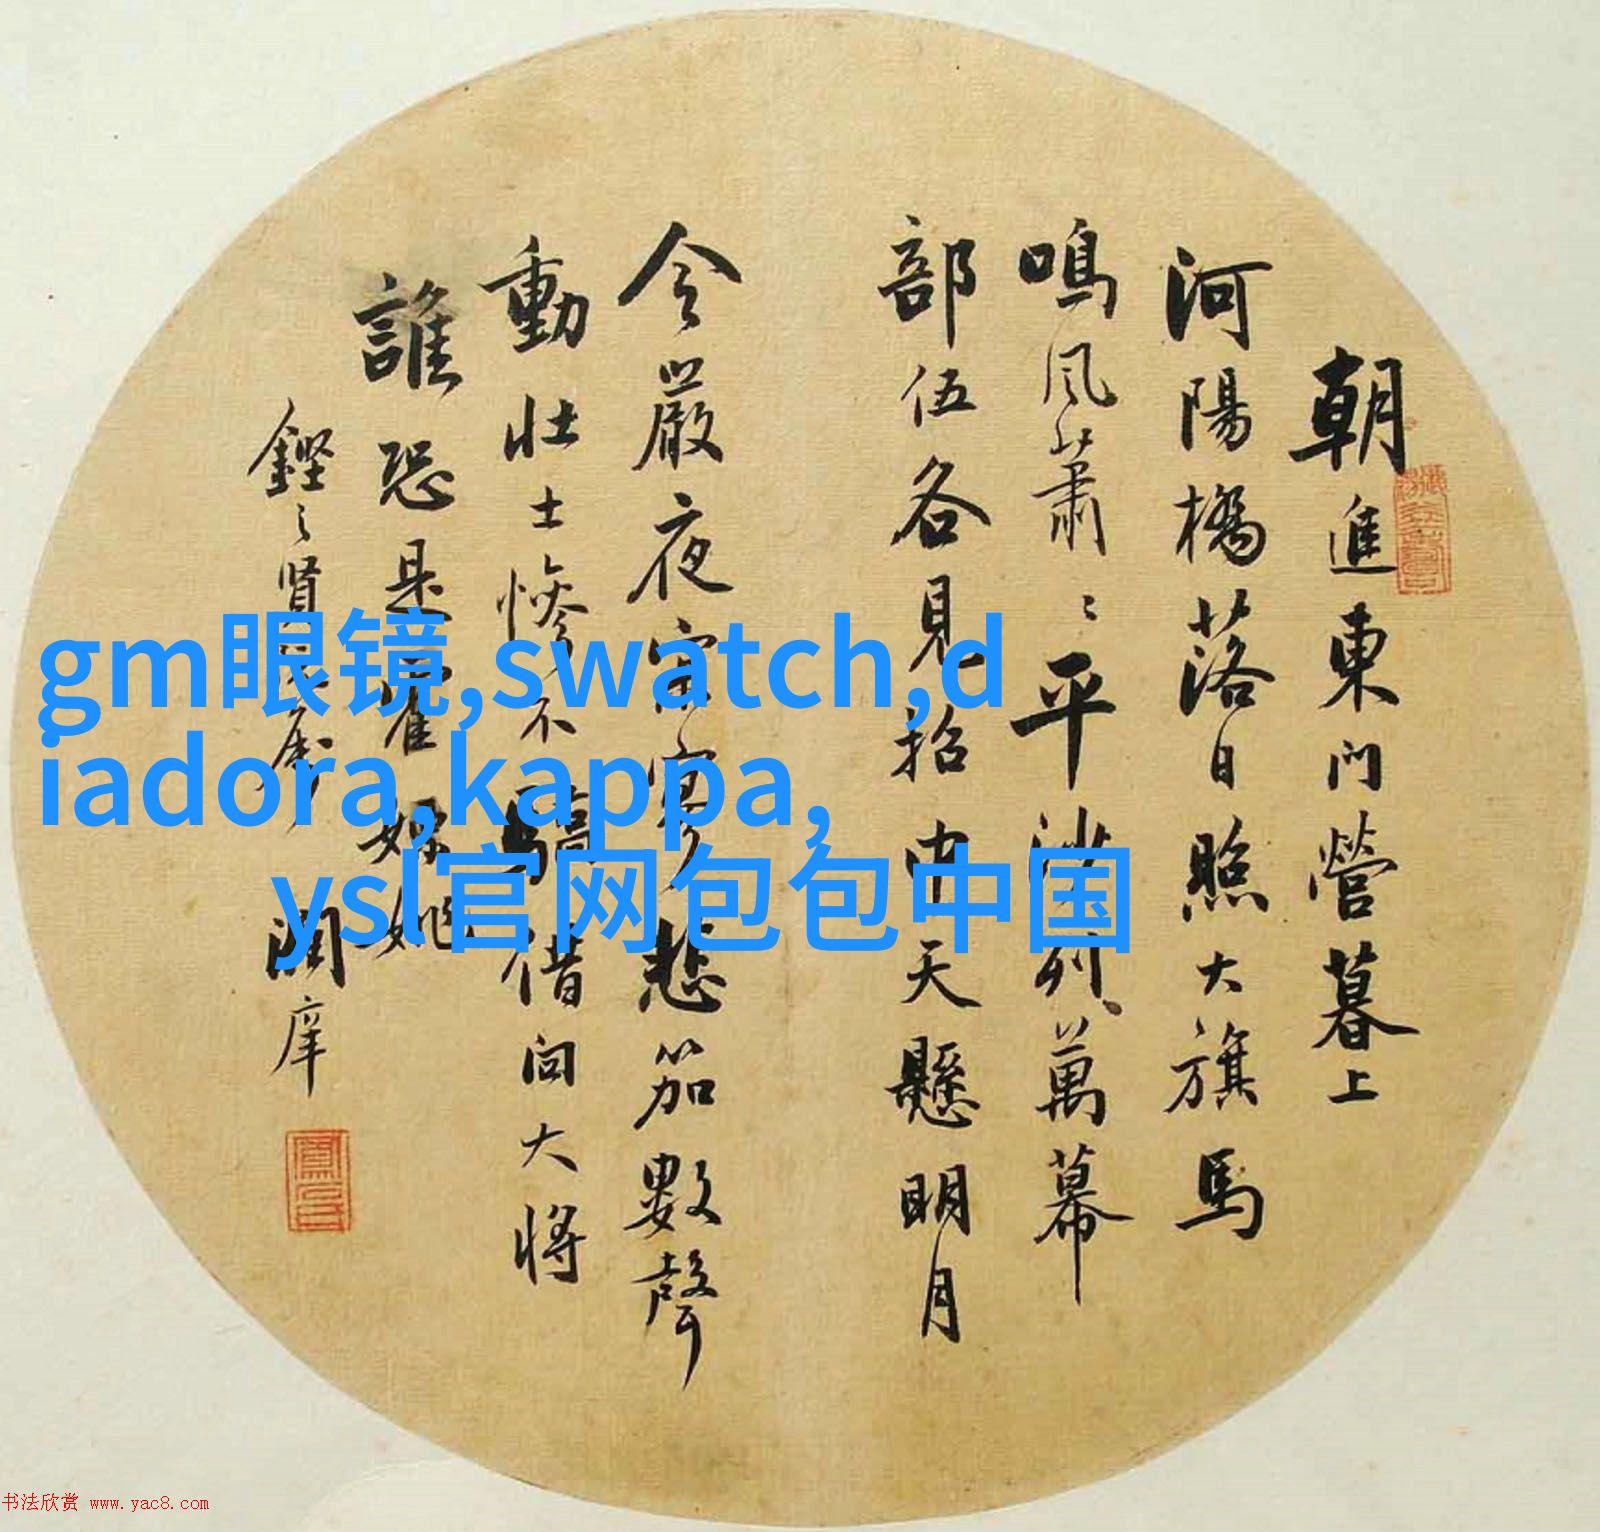 朝進東門營暮上
河陽橋落日照大旗馬
鳴風蕭〻平沙列萬幕
部伍各見招中天懸明月
令嚴夜寂寥悲笳數聲
動壯士慘不驕借問大將
誰恐是霍嫖姚
賢
潤庠
gm眼镜,swatch,d
iadora,kappa,
ysl官网包包中国
书法欣赏 www.yac8.com